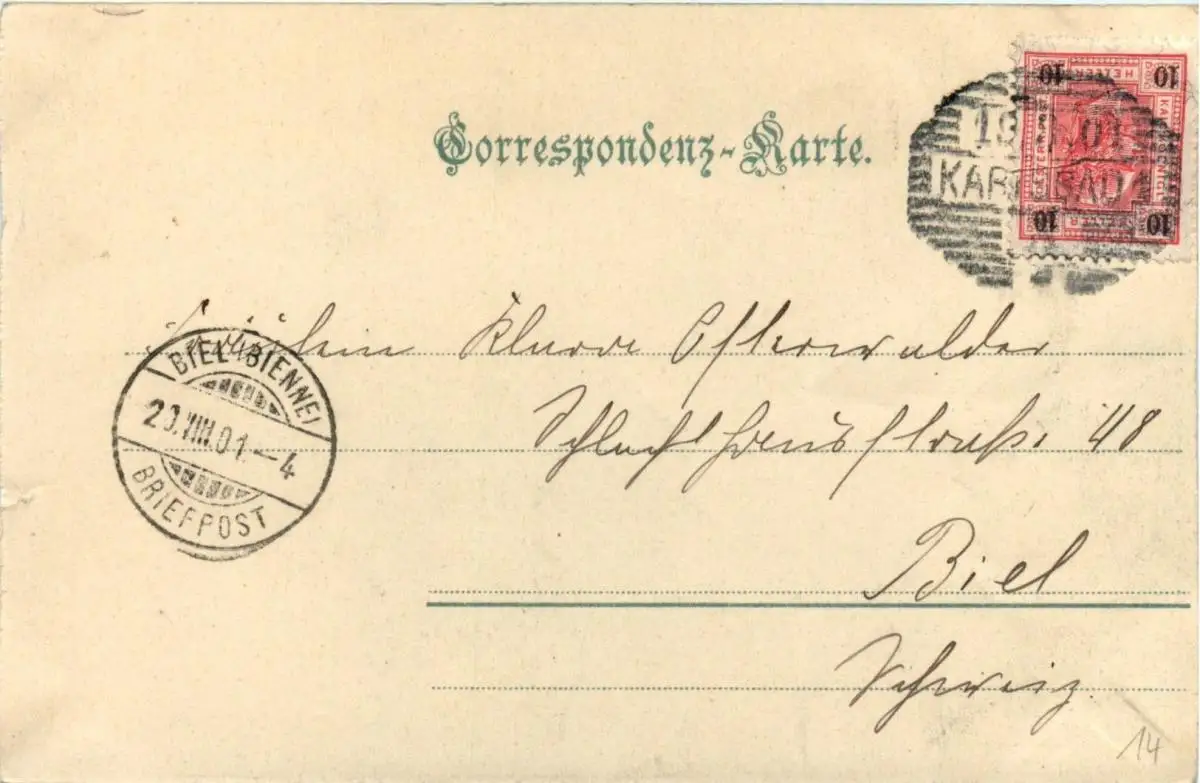 Correspondenz-Karte.
10 10
HELLER
10 10
KARLSBAD 1
Fräulein Klara Osterwalder
Schlachthausstraße 48
Biel
Schweiz.
BIEL (BIENNE)
20.VIII.01.–4
BRIEFPOST
14